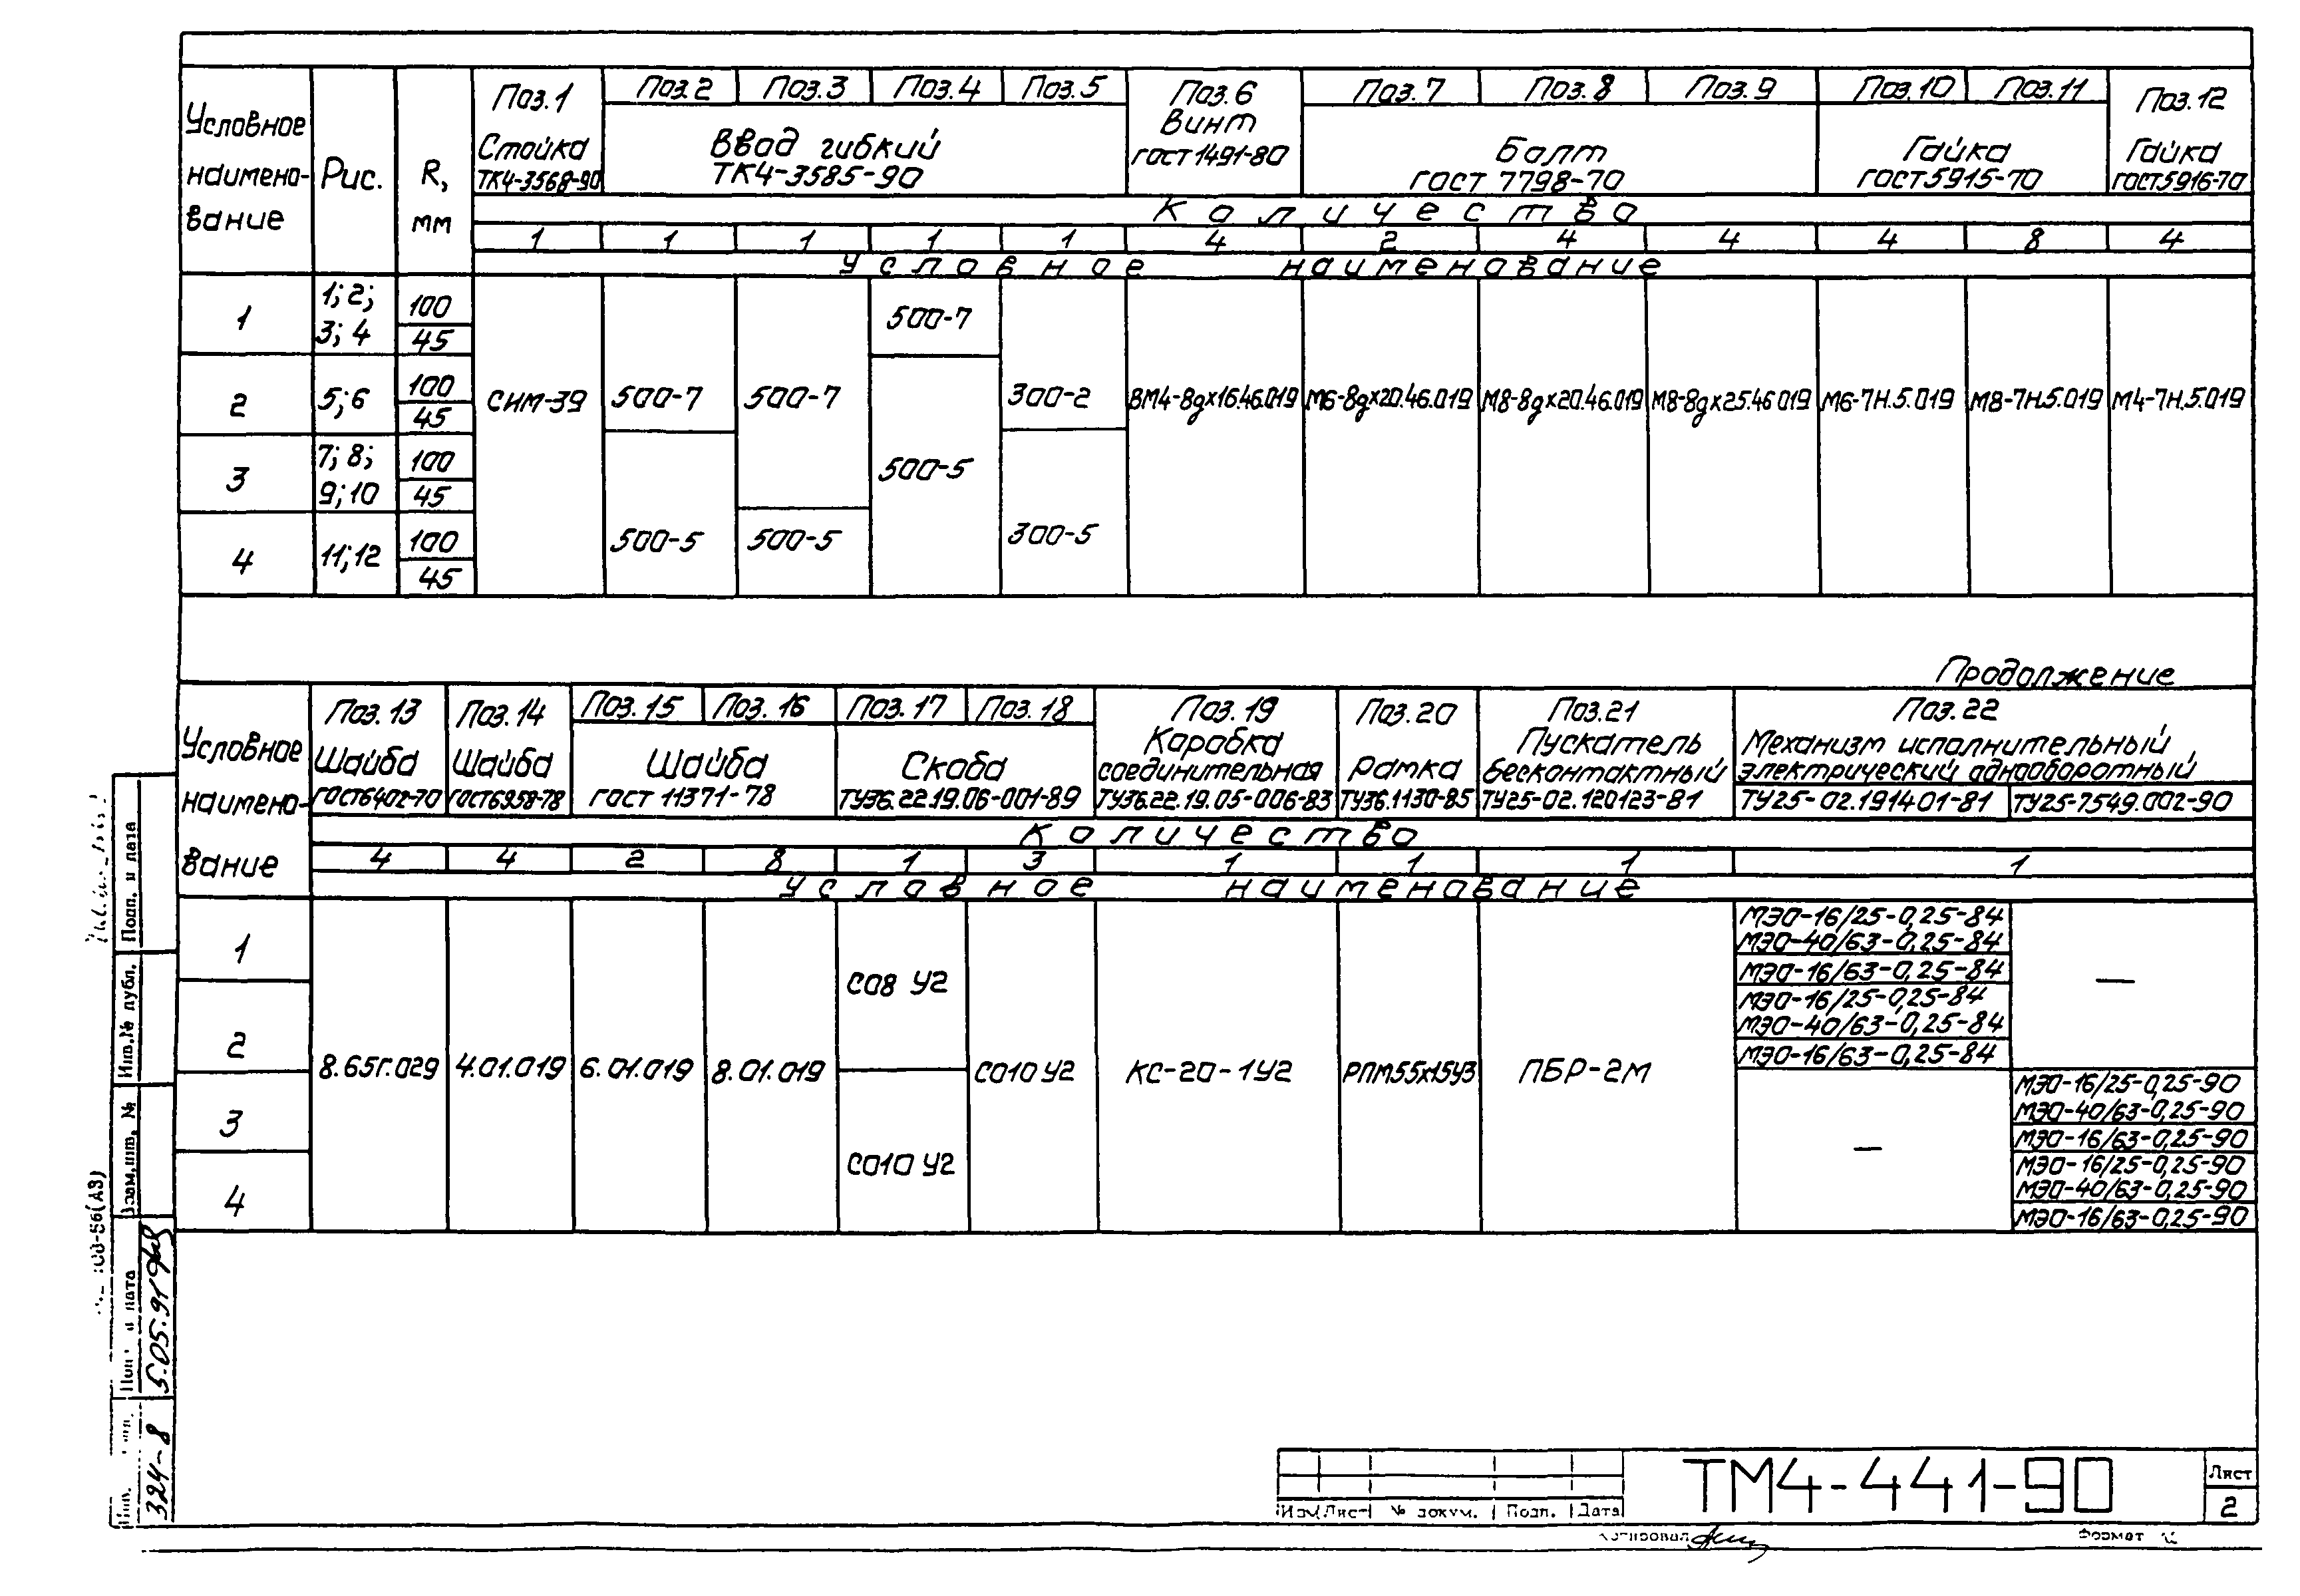 Условное наимено-вание Рис. R, мм
Поз.1 Стойка ТК4-3568-90
Поз.2 Поз.3 Поз.4 Поз.5
Ввод гибкий
ТК4-3585-90
Поз.6 Винт ГОСТ 1491-80
Поз.7 Поз.8 Поз.9
Болт
ГОСТ 7798-70
Поз.10 Поз.11
Гайка
ГОСТ 5915-70
Поз.12 Гайка ГОСТ5916-70
Количество
1 1 1 1 1 4 2 4 4 4 8 4
Условное наименование
1 1; 2; 3; 4 100 45
2 5; 6 100 45
3 7; 8; 9; 10 100 45
4 11; 12 100 45
СИМ-39
500-7
500-5
500-7
500-5
500-7
500-5
300-2
300-5
ВМ4-8gx16.46.019 М6-8gx20.46.019 М8-8gx20.46.019 М8-8gx25.46 019 М6-7Н.5.019 М8-7Н.5.019 М4-7Н.5.019
Продолжение
Условное наимено-вание
Поз.13 Шайба ГОСТ6402-70
Поз.14 Шайба ГОСТ6958-78
Поз.15 Поз.16
Шайба
ГОСТ 11371-78
Поз.17 Поз.18
Скоба
ТУ36.22.19.06-001-89
Поз.19
Коробка
соединительная
ТУ36.22.19.05-006-83
Поз.20
Рамка
ТУ36.1130-85
Поз.21
Пускатель
бесконтактный
ТУ25-02.120123-81
Поз.22
Механизм исполнительный
электрический однооборотный
ТУ25-02.191401-81 ТУ25-7549.002-90
Количество
4 4 2 8 1 3 1 1 1 1
Условное наименование
1
2
3
4
8.65Г.029 4.01.019 6.01.019 8.01.019
СО8 У2
СО10 У2
СО10 У2 КС-20-1У2 РПМ55х15У3 ПБР-2М
МЭО-16/25-0,25-84
МЭО-40/63-0,25-84
МЭО-16/63-0,25-84
МЭО-16/25-0,25-84
МЭО-40/63-0,25-84
МЭО-16/63-0,25-84
—
—
МЭО-16/25-0,25-90
МЭО-40/63-0,25-90
МЭО-16/63-0,25-90
МЭО-16/25-0,25-90
МЭО-40/63-0,25-90
МЭО-16/63-0,25-90
Подп. и дата
Инв.№ публ.
Взам.инв. №
и дата
5.05.91
324-8
Изм Лист № докум. Подп. Дата
ТМ4-441-90
Лист
2
Копировал
Формат